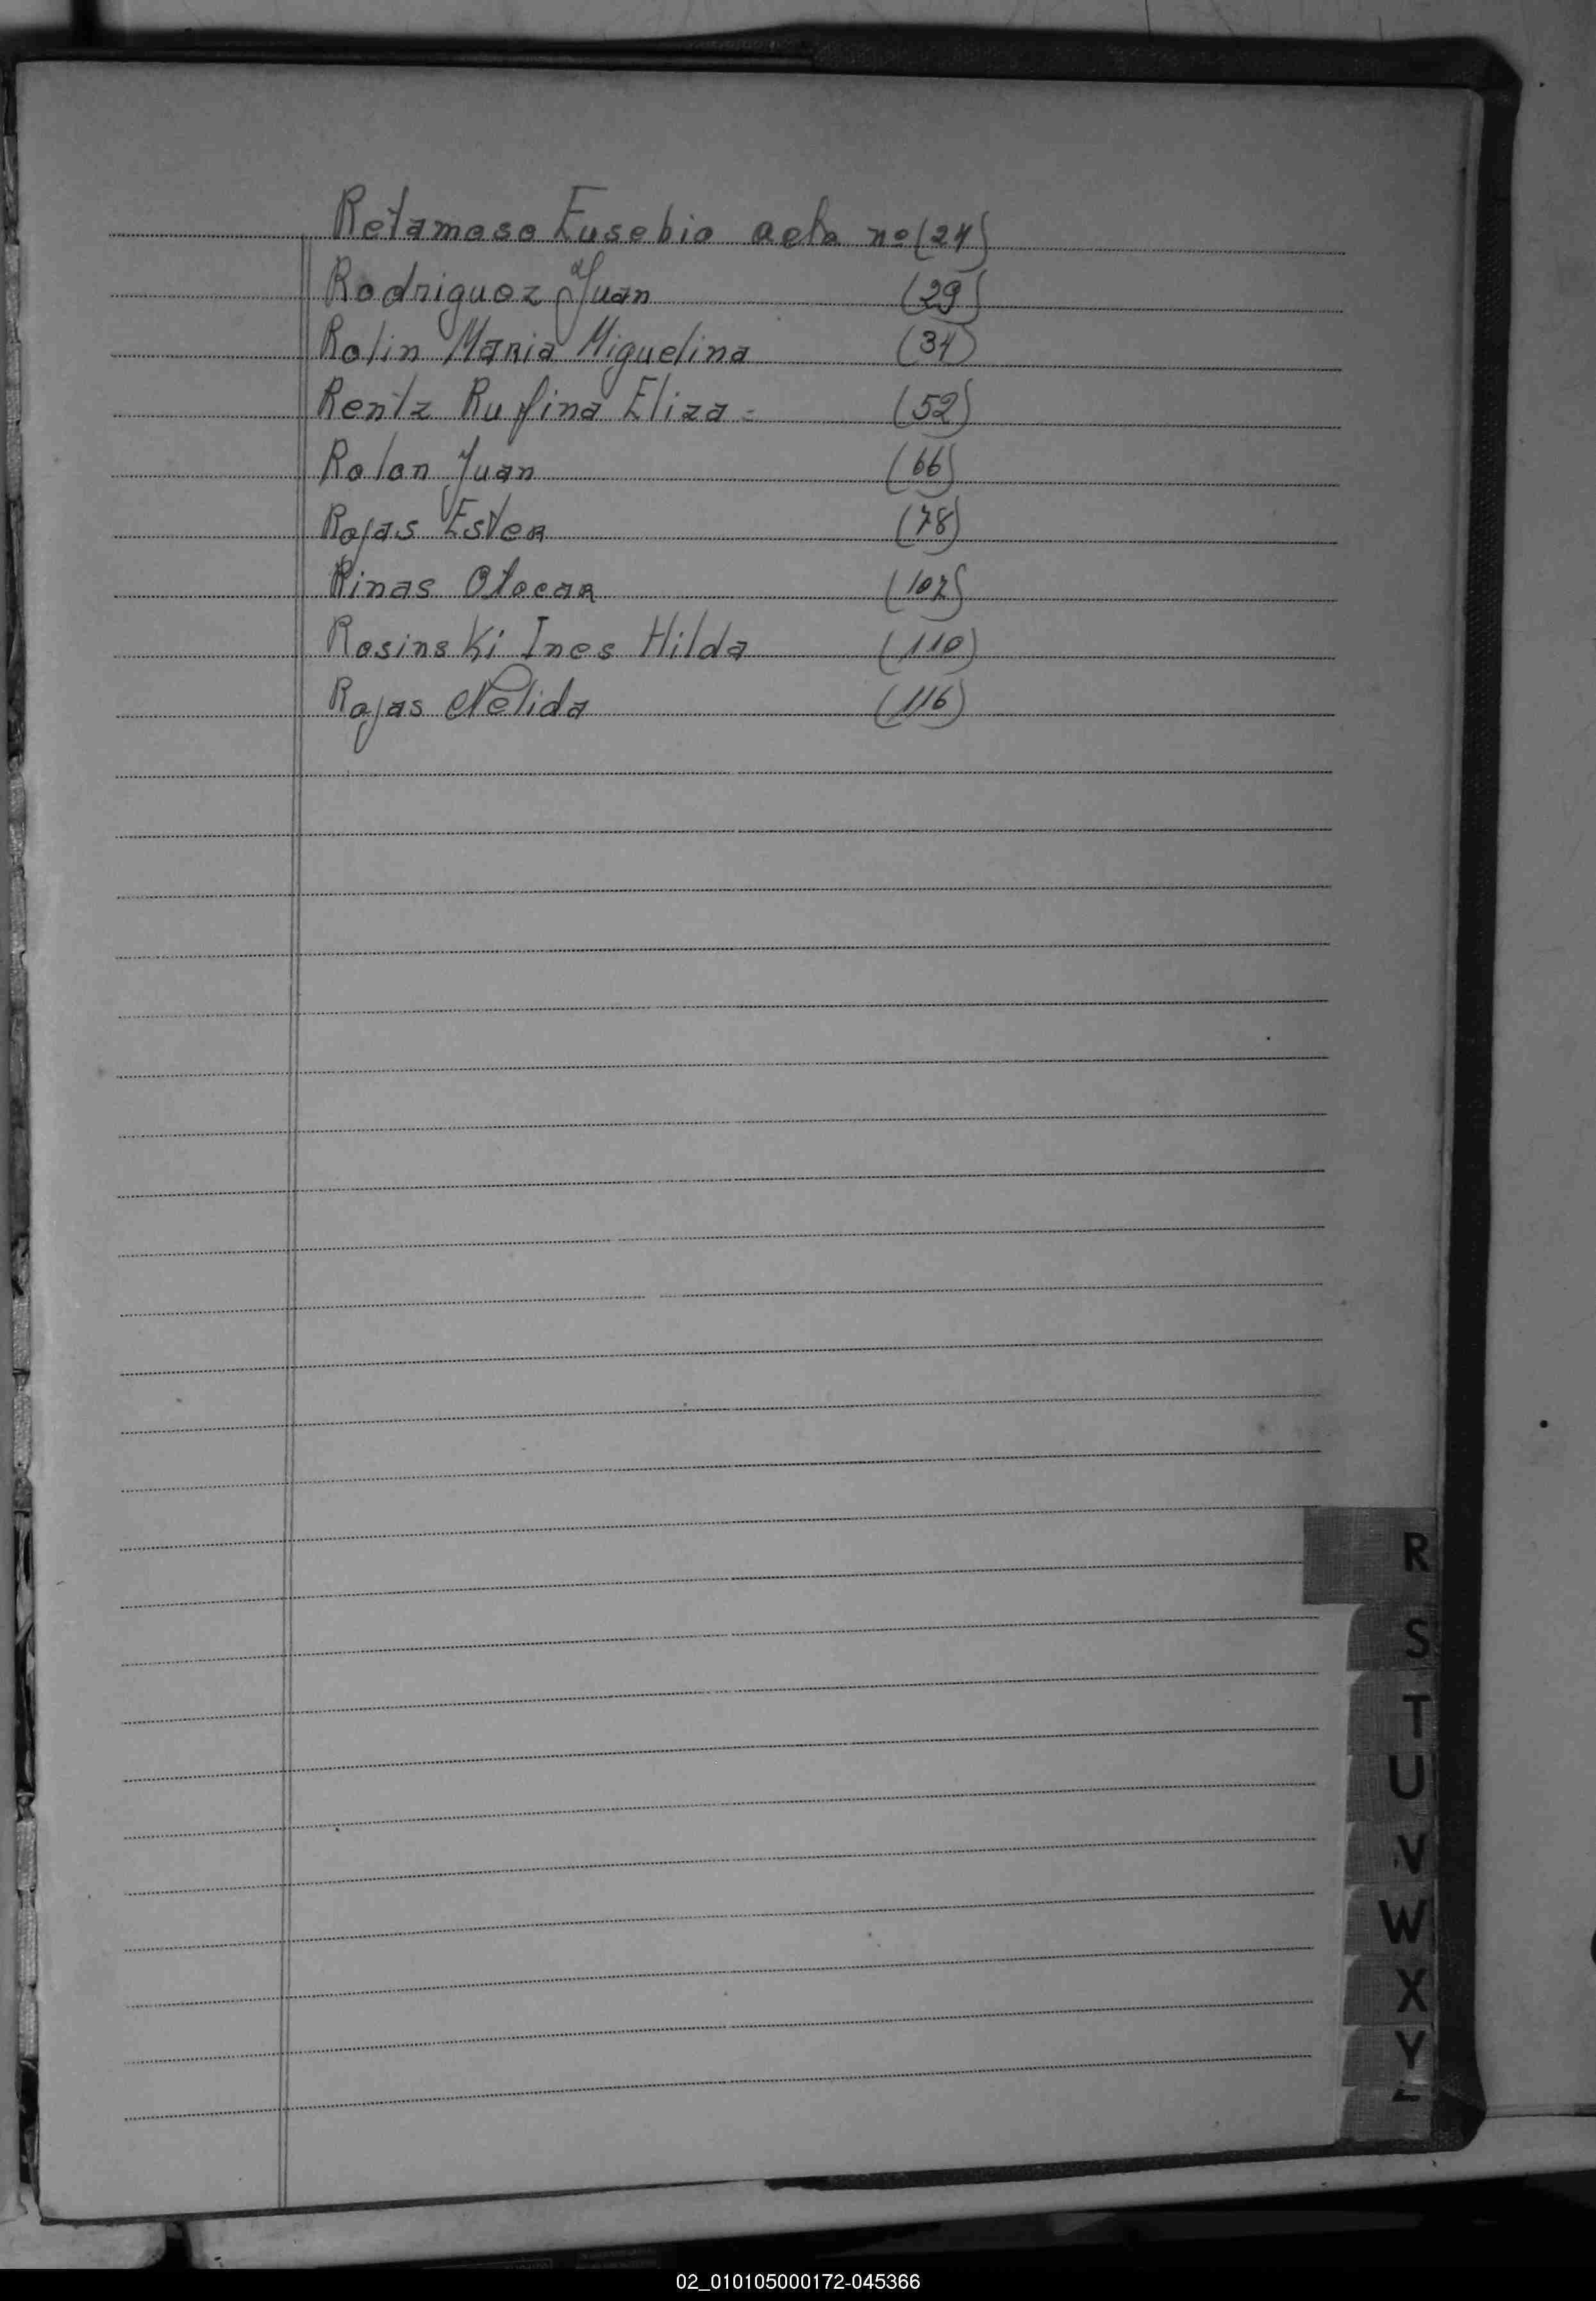 Retamoso Eusebio acta nº (24)
Rodriguez Juan (29)
Rolin Maria Miguelina (34)
Rentz Rufina Eliza = (52)
Rolon Juan (66)
Rojas Ester (78)
Rinas Otocar (102)
Rosinski Ines Hilda (110)
Rojas Nelida (116)
R
S
T
U
V
W
X
Y
Z
02_010105000172-045366